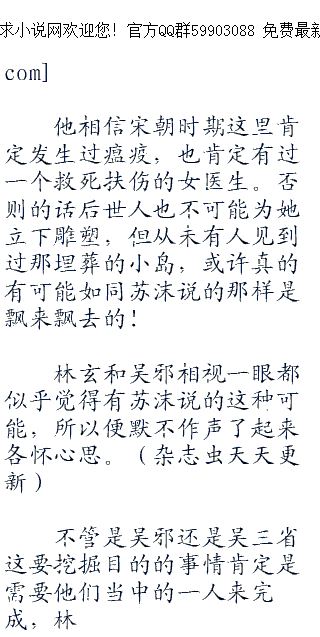 求小说网欢迎您！官方QQ群59903088 免费最新
com]
他相信宋朝时期这里肯
定发生过瘟疫，也肯定有过
一个救死扶伤的女医生。否
则的话后世人也不可能为她
立下雕塑，但从未有人见到
过那埋葬的小岛，或许真的
有可能如同苏沫说的那样是
飘来飘去的！
林玄和吴邪相视一眼都
似乎觉得有苏沫说的这种可
能，所以便默不作声了起来
各怀心思。（杂志虫天天更
新）
不管是吴邪还是吴三省
这要挖掘目的的事情肯定是
需要他们当中的一人来完
成，林